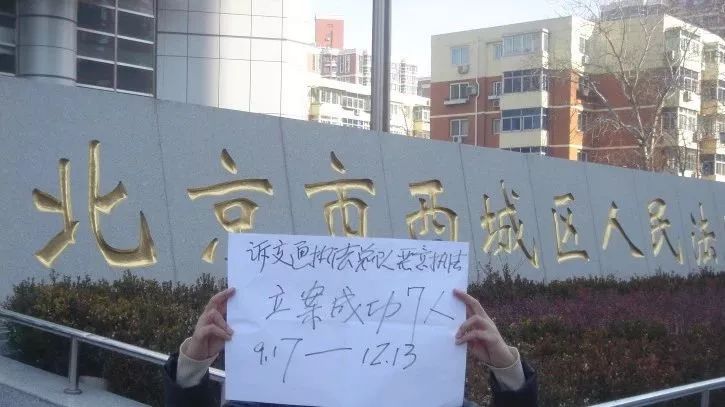 北京市西城区人民法
诉交通执法总队恶意执法
立案成功7人
9.17—12.13